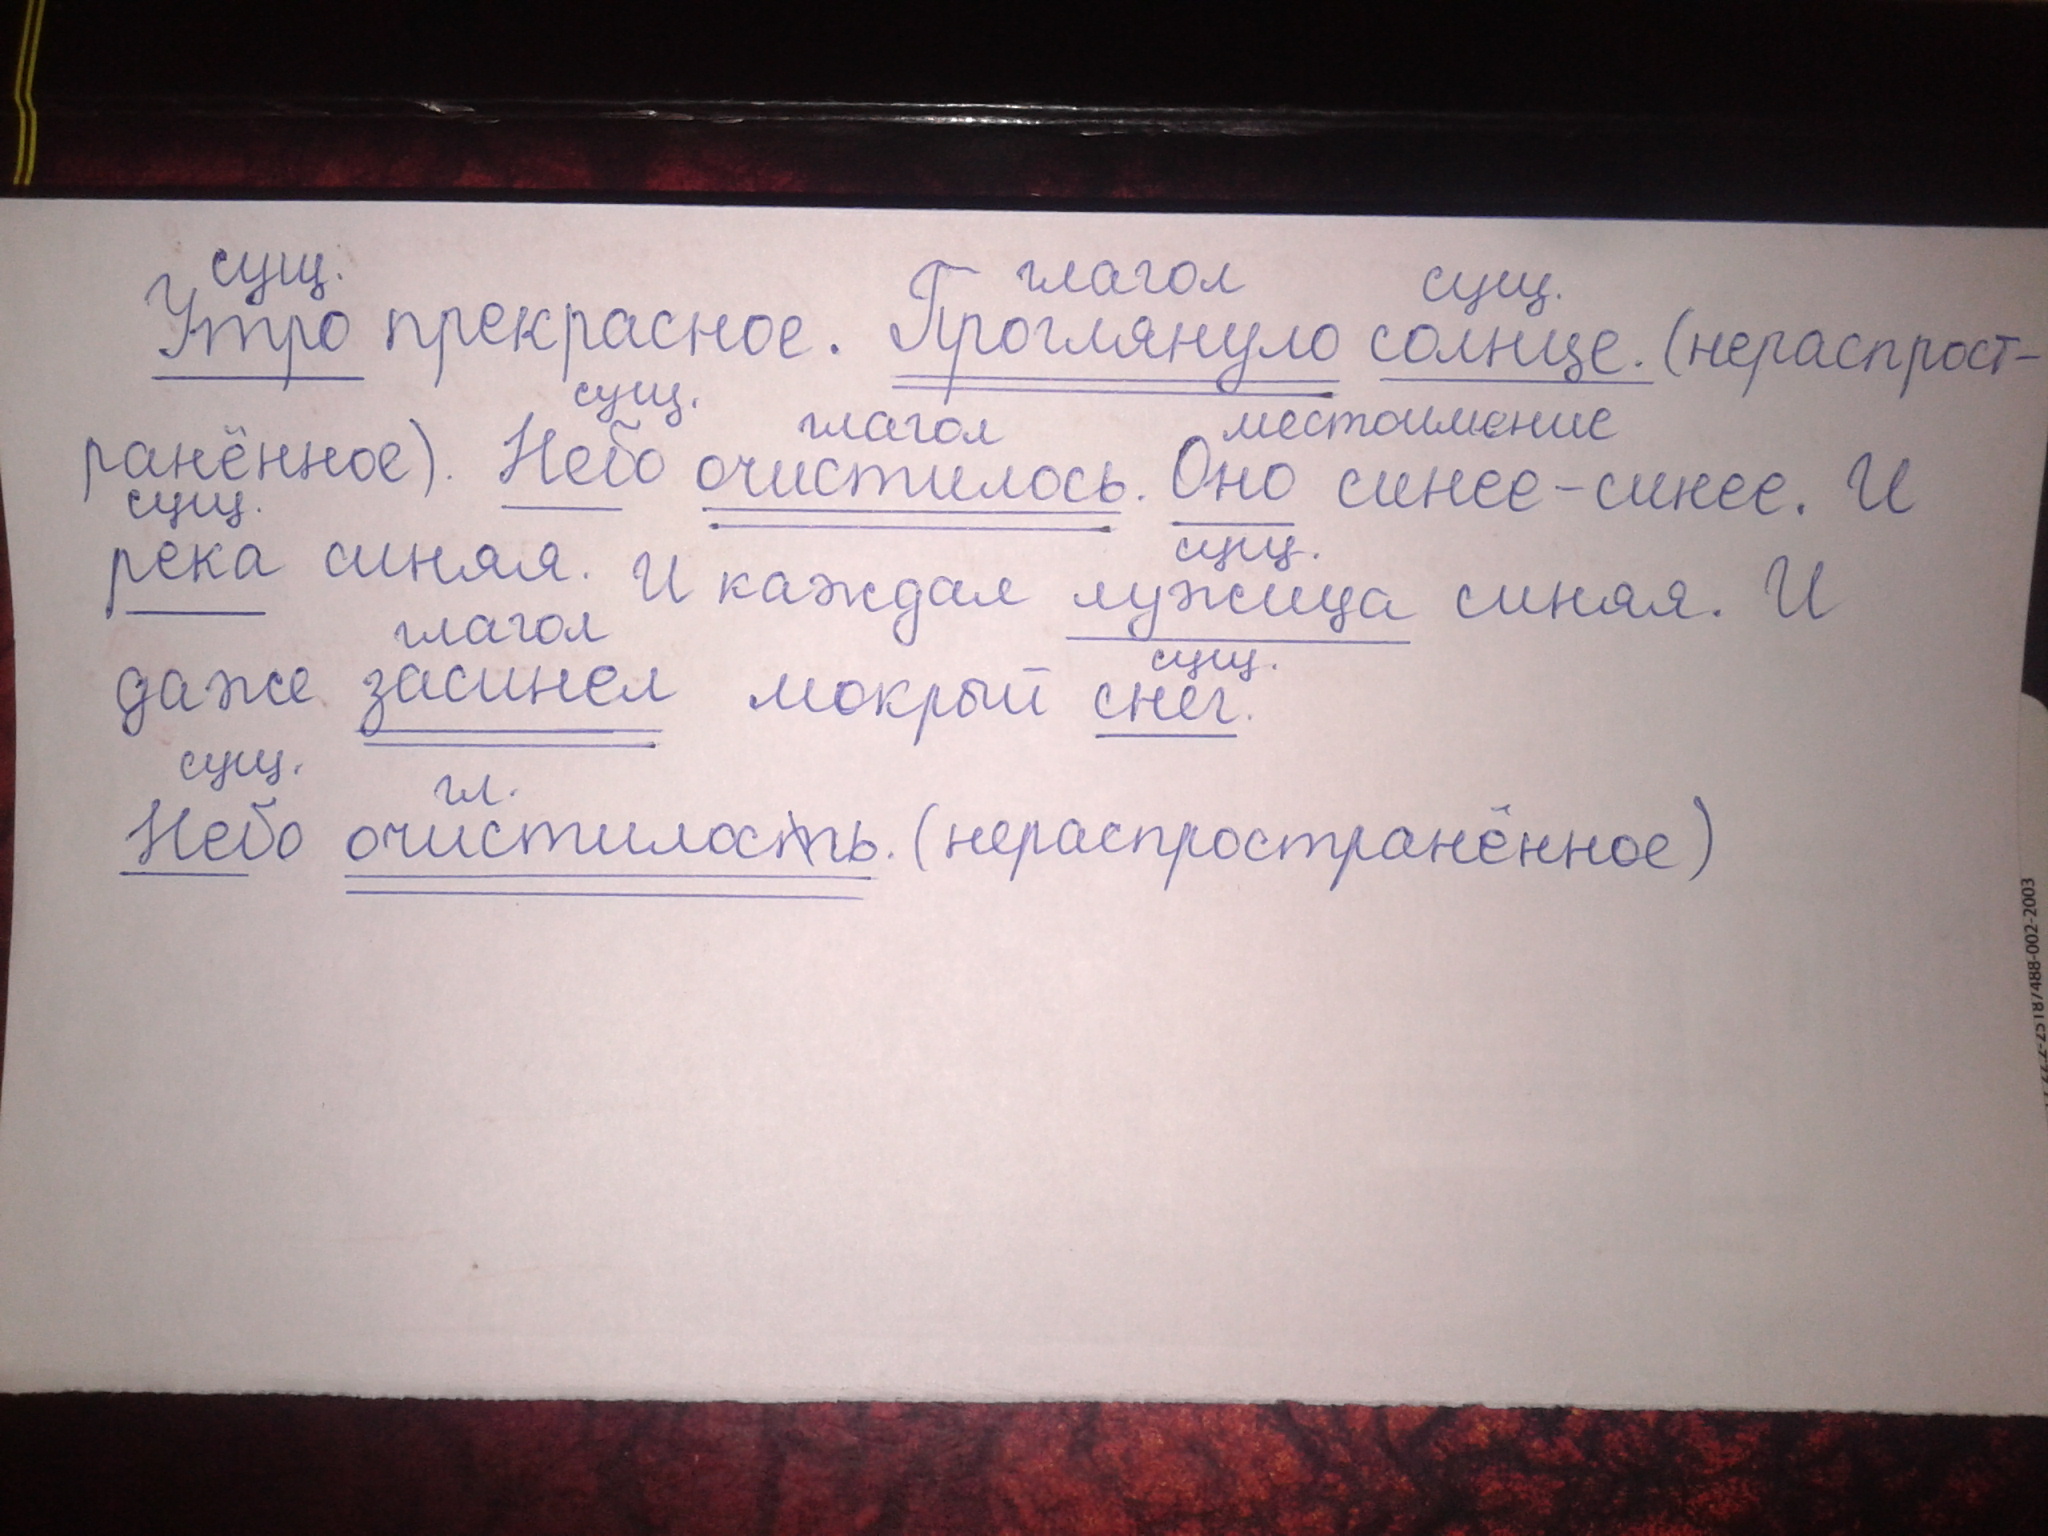 сущ. глагол сущ.
Утро прекрасное. Проглянуло солнце. (нераспрост-
сущ. глагол местоимение
ранённое). Небо очистилось. Оно синее-синее. И
сущ. сущ.
река синяя. И каждая лужица синяя. И
глагол сущ.
даже засинел мокрый снег.
сущ. гл.
Небо очистилость. (нераспространённое)